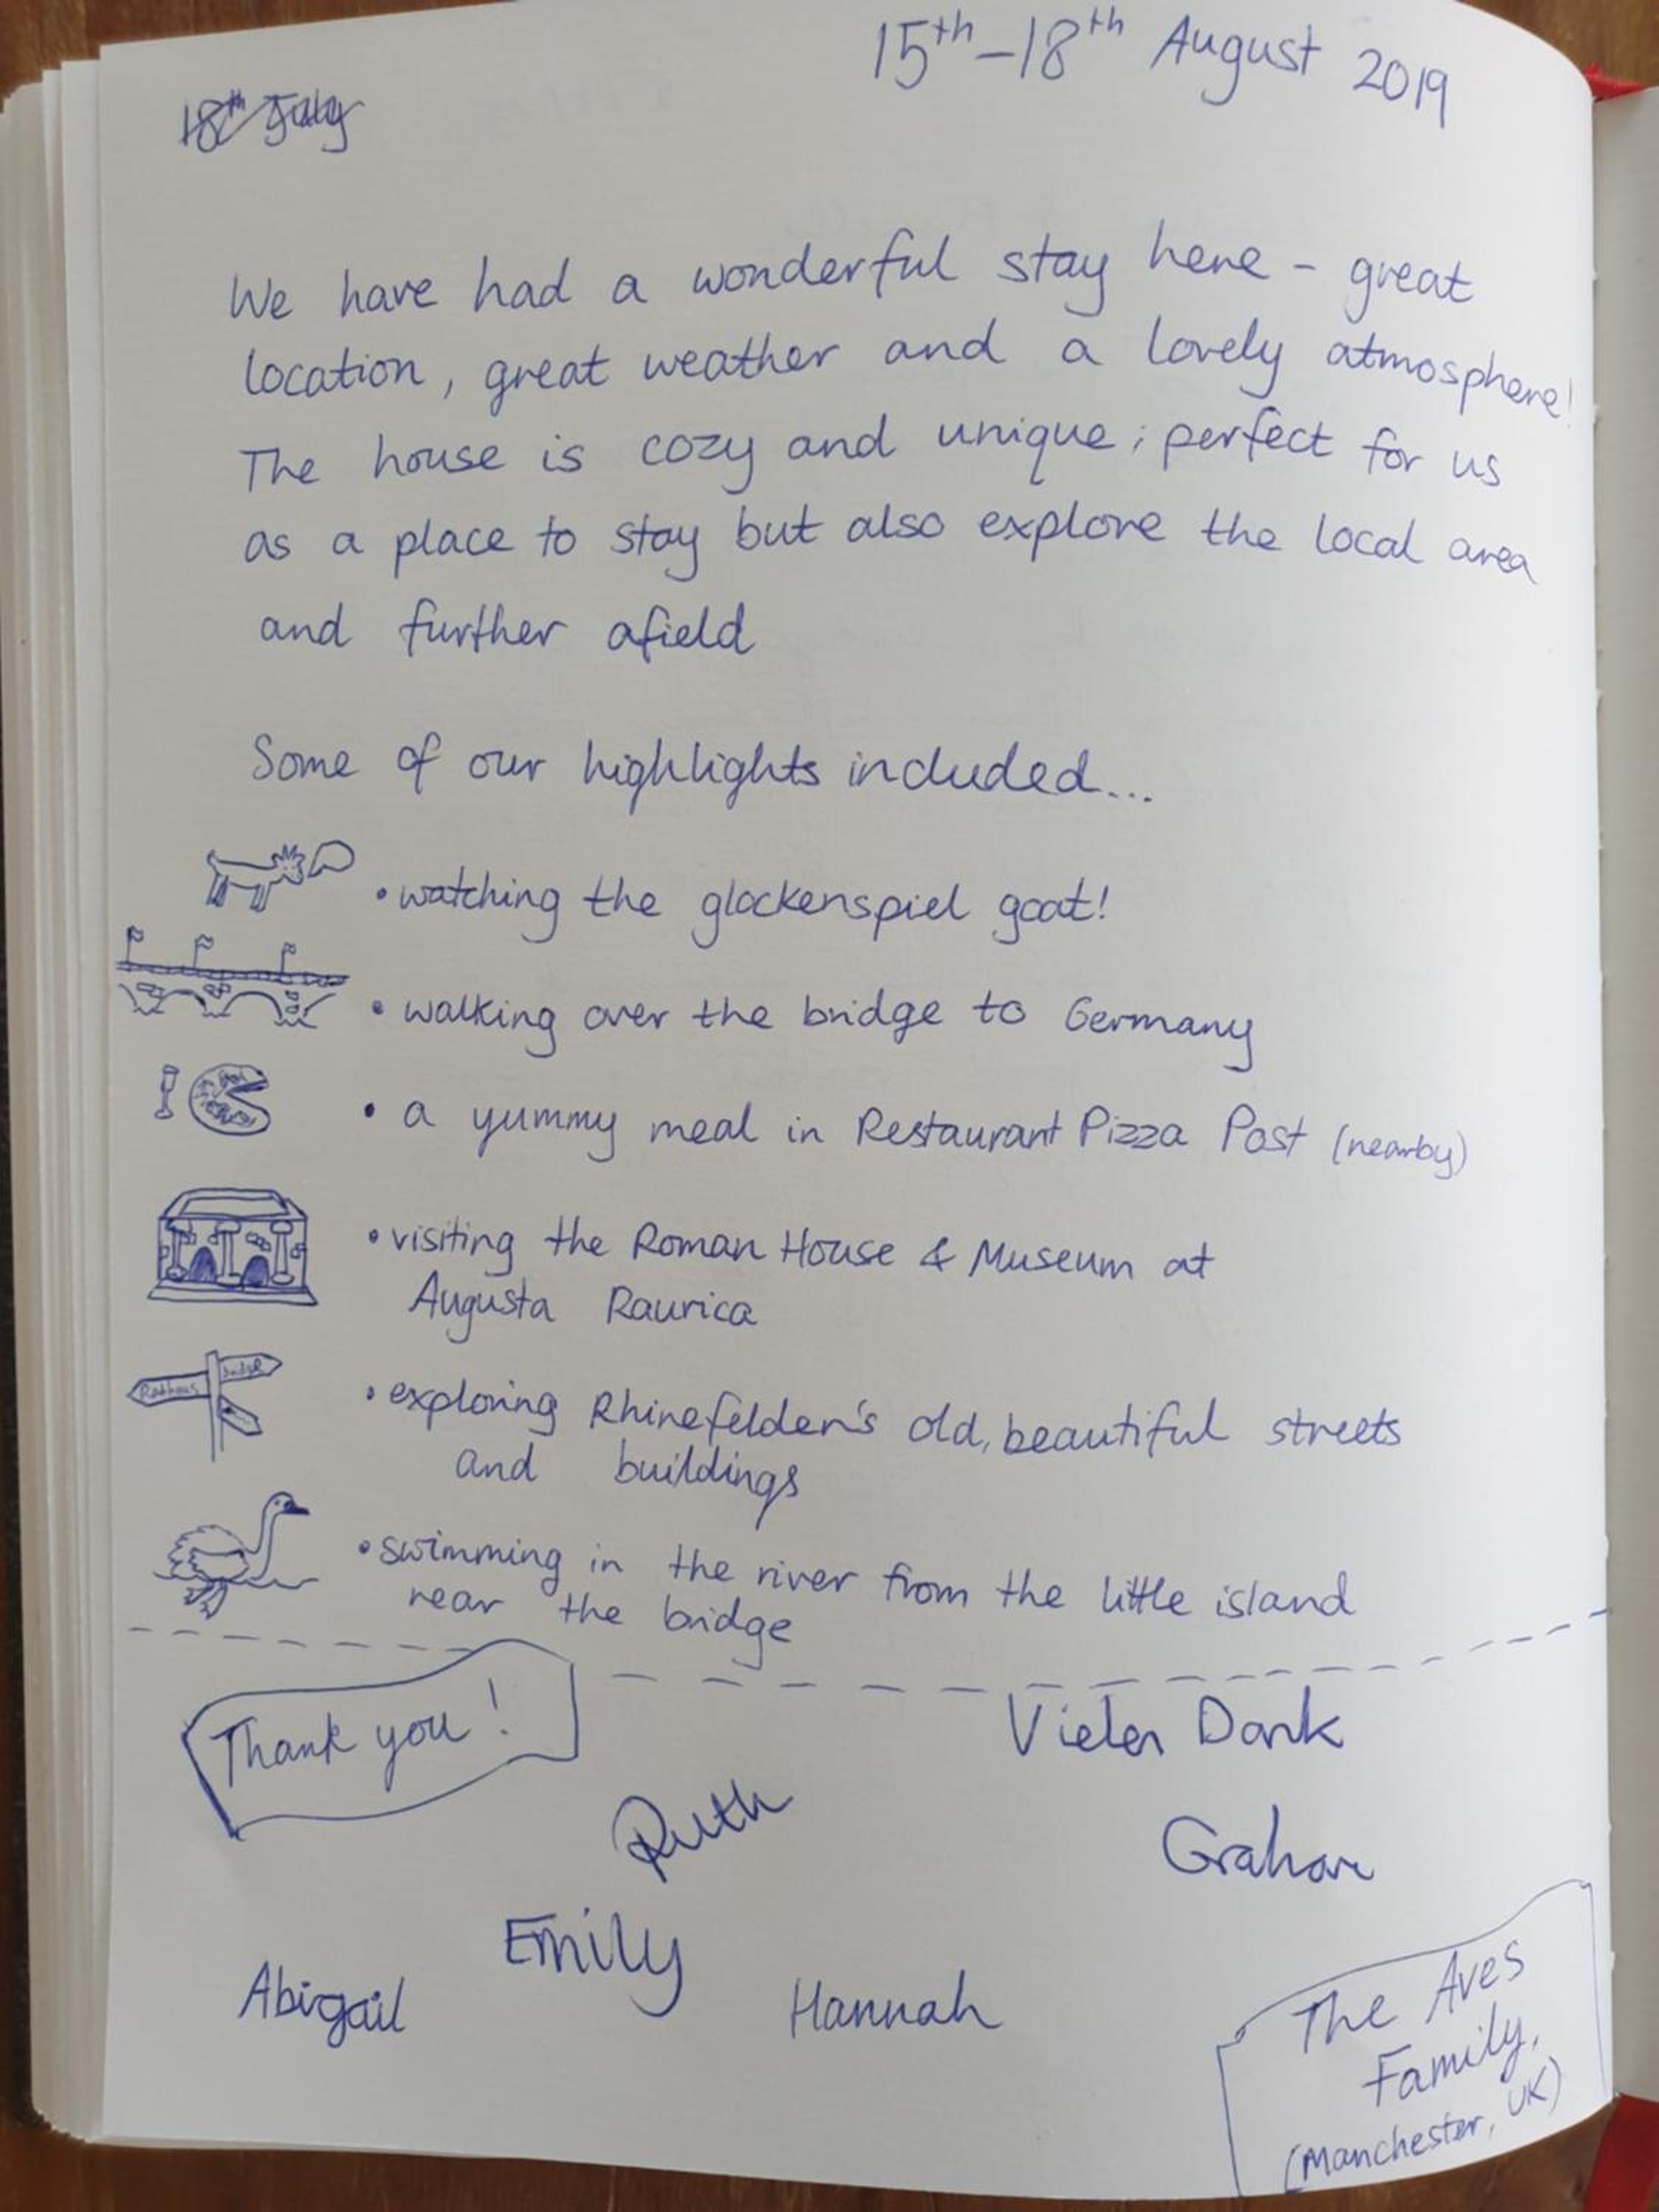 15th-18th August 2019
18th July
We have had a wonderful stay here - great
location, great weather and a lovely atmosphere!
The house is cozy and unique; perfect for us
as a place to stay but also explore the local area
and further afield
Some of our highlights included...
• watching the glockenspiel goat!
• walking over the bridge to Germany
• a yummy meal in Restaurant Pizza Post (nearby)
• visiting the Roman House & Museum at
Augusta Raurica
bridge
Rathaus
• exploring Rhinefelden's old, beautiful streets
and buildings
• swimming in the river from the little island
near the bridge
Thank you!
Vielen Dank
Ruth
Graham
Emily
Abigail
Hannah
The Aves
Family,
(Manchester, UK)